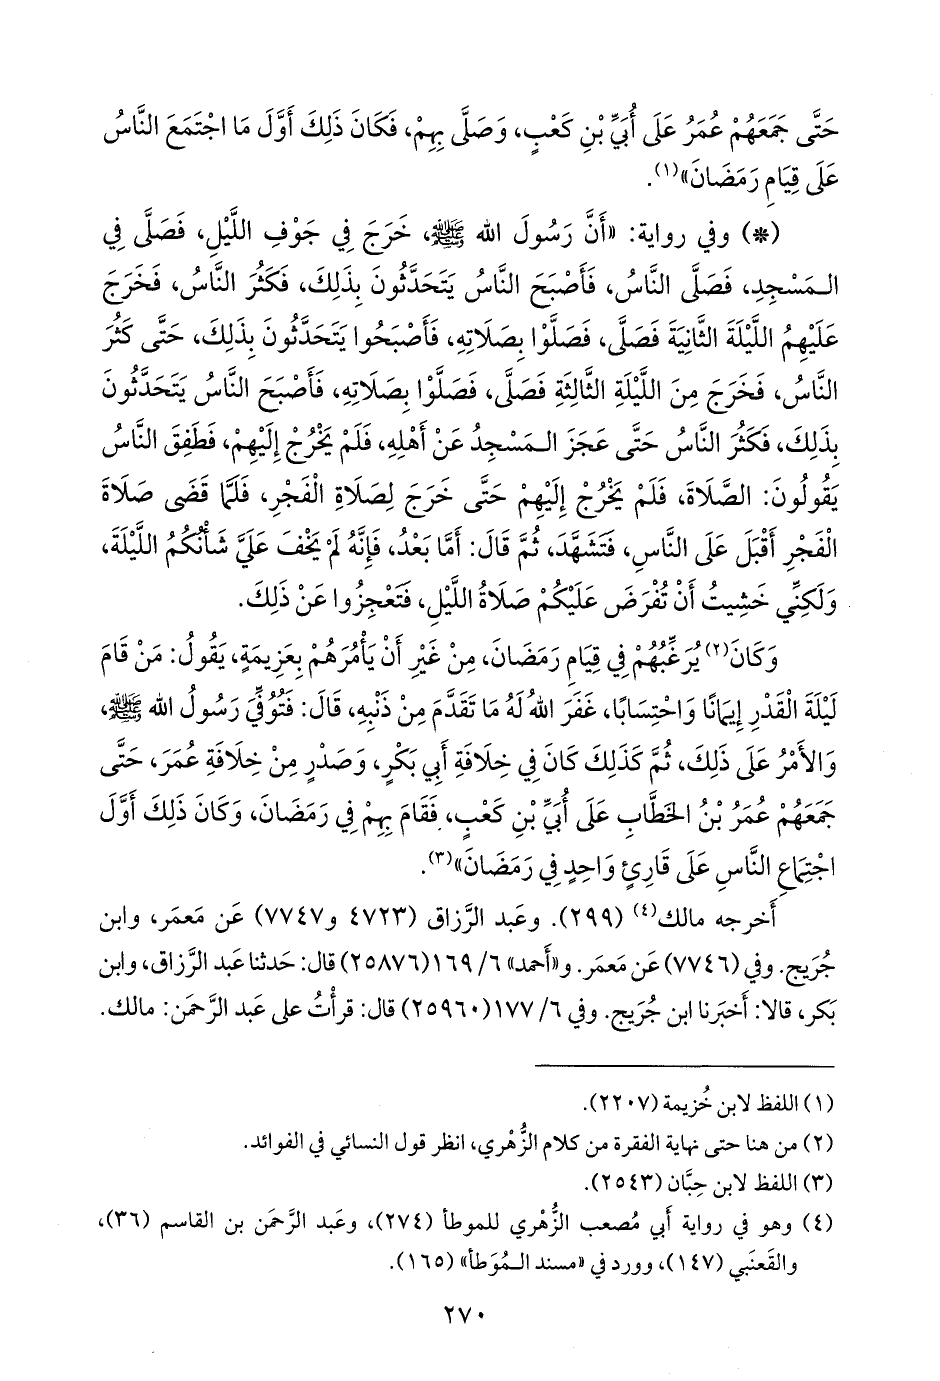 حَتَّى جَمَعَهُمْ عُمَرُ عَلَى أُبَيِّ بْنِ كَعْبٍ، وَصَلَّى بِهِمْ، فَكَانَ ذَلِكَ أَوَّلَ مَا اجْتَمَعَ النَّاسُ
عَلَى قِيَامِ رَمَضَانَ»(١).
(*) وفي رواية: «أَنَّ رَسُولَ الله ﷺ، خَرَجَ فِي جَوْفِ اللَّيْلِ، فَصَلَّى فِي
المَسْجِدِ، فَصَلَّى النَّاسُ، فَأَصْبَحَ النَّاسُ يَتَحَدَّثُونَ بِذَلِكَ، فَكَثُرَ النَّاسُ، فَخَرَجَ
عَلَيْهِمُ اللَّيْلَةَ الثَّانِيَةَ فَصَلَّى، فَصَلَّوْا بِصَلَاتِهِ، فَأَصْبَحُوا يَتَحَدَّثُونَ بِذَلِكَ، حَتَّى كَثُرَ
النَّاسُ، فَخَرَجَ مِنَ اللَّيْلَةِ الثَّالِثَةِ فَصَلَّى، فَصَلَّوْا بِصَلَاتِهِ، فَأَصْبَحَ النَّاسُ يَتَحَدَّثُونَ
بِذَلِكَ، فَكَثُرَ النَّاسُ حَتَّى عَجَزَ المَسْجِدُ عَنْ أَهْلِهِ، فَلَمْ يَخْرُجْ إِلَيْهِمْ، فَطَفِقَ النَّاسُ
يَقُولُونَ: الصَّلَاةَ، فَلَمْ يَخْرُجْ إِلَيْهِمْ حَتَّى خَرَجَ لِصَلَاةِ الْفَجْرِ، فَلَمَّا قَضَى صَلَاةَ
الْفَجْرِ أَقْبَلَ عَلَى النَّاسِ، فَتَشَهَّدَ، ثُمَّ قَالَ: أَمَّا بَعْدُ، فَإِنَّهُ لَمْ يَخْفَ عَلَيَّ شَأْنُكُمُ اللَّيْلَةَ،
وَلَكِنِّي خَشِيتُ أَنْ تُفْرَضَ عَلَيْكُمْ صَلَاةُ اللَّيْلِ، فَتَعْجِزُوا عَنْ ذَلِكَ.
وَكَانَ(٢) يُرَغِّبُهُمْ فِي قِيَامِ رَمَضَانَ، مِنْ غَيْرِ أَنْ يَأْمُرَهُمْ بِعَزِيمَةٍ، يَقُولُ: مَنْ قَامَ
لَيْلَةَ الْقَدْرِ إِيمَانًا وَاحْتِسَابًا، غَفَرَ اللهُ لَهُ مَا تَقَدَّمَ مِنْ ذَنْبِهِ، قَالَ: فَتُوُفِّيَ رَسُولُ الله ﷺ،
وَالأَمْرُ عَلَى ذَلِكَ، ثُمَّ كَذَلِكَ كَانَ فِي خِلَافَةِ أَبِي بَكْرٍ، وَصَدْرٍ مِنْ خِلَافَةِ عُمَرَ، حَتَّى
جَمَعَهُمْ عُمَرُ بْنُ الخَطَّابِ عَلَى أُبَيِّ بْنِ كَعْبٍ، فَقَامَ بِهِمْ فِي رَمَضَانَ، وَكَانَ ذَلِكَ أَوَّلَ
اجْتِمَاعِ النَّاسِ عَلَى قَارِئٍ وَاحِدٍ فِي رَمَضَانَ»(٣).
أخرجه مالك(٤) (٢٩٩). وعَبد الرَّزاق (٤٧٢٣ و٧٧٤٧) عَن مَعمَر، وابن
جُرَيج. وفي (٧٧٤٦) عَن مَعمَر. و«أحمد» ٦/ ١٦٩(٢٥٨٧٦) قال: حَدثنا عَبد الرَّزاق، وابن
بَكر، قالا: أَخبَرنا ابن جُرَيج. وفي ٦/ ١٧٧(٢٥٩٦٠) قال: قرأْتُ على عَبد الرَّحمَن: مالك.
(١) اللفظ لابن خُزيمة (٢٢٠٧).
(٢) من هنا حتى نهاية الفقرة من كلام الزُّهْري، انظر قول النسائي في الفوائد.
(٣) اللفظ لابن حِبَّان (٢٥٤٣).
(٤) وهو في رواية أبي مُصعب الزُّهْري للموطأ (٢٧٤)، وعَبد الرَّحمَن بن القاسم (٣٦)،
والقَعنَبي (١٤٧)، وورد في «مسند المُوَطأ» (١٦٥).
٢٧٠